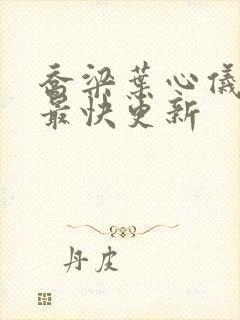 乔梁葉心儀
最快更新
丹皮